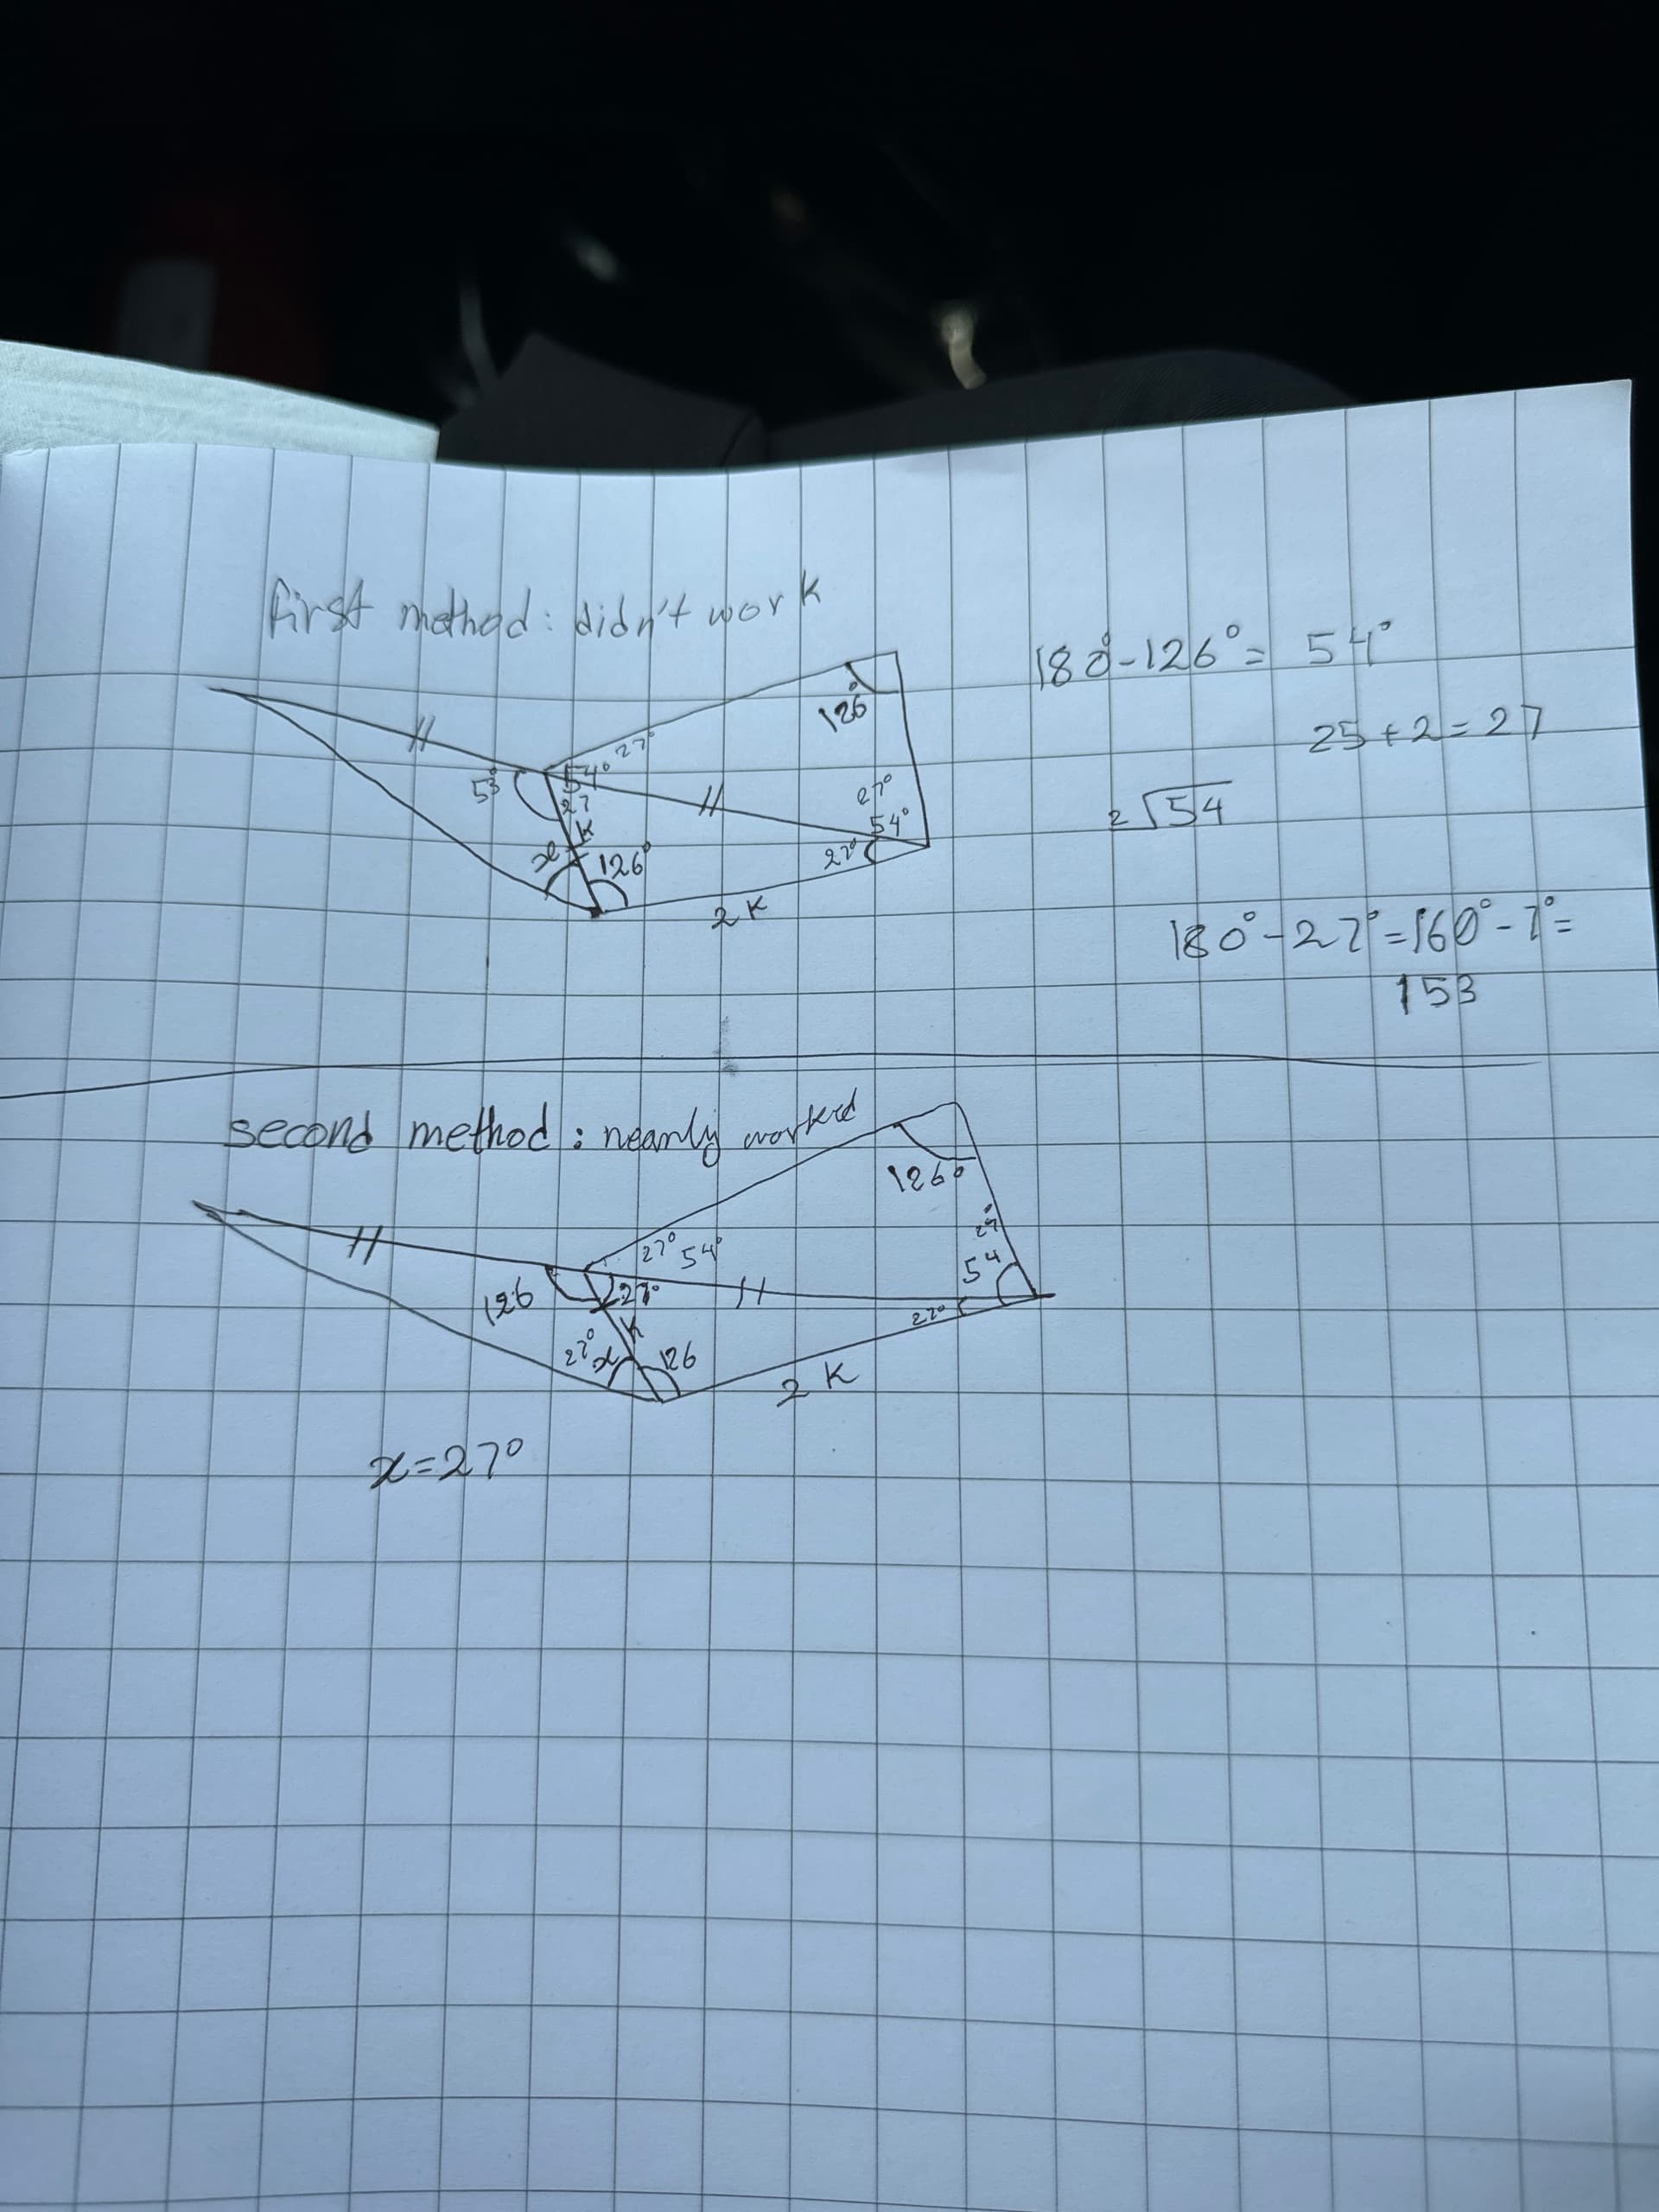 first method: didn't work
180°-126°= 54°
126°
27°
25+2=27
//
53°
54°
27
//
27°
54°
2√54
K
x
126°
27°
2K
180°-27°=160°-7°=
153
second method: nearly worked
126°
27°
27° 54°
//
54
126
27°
//
27°
K
27° x
126
2 K
x=27°